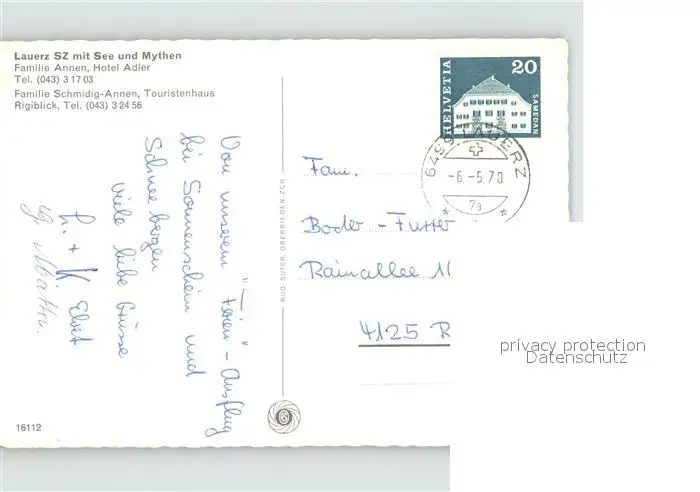 Lauerz SZ mit See und Mythen
Familie Annen, Hotel Adler
Tel. (043) 3 17 03
Familie Schmidig-Annen, Touristenhaus
Rigiblick, Tel. (043) 3 24 56
HELVETIA
20
SAMEDAN
6499 LAUERZ
-6.-5.70
Von unserem "Ferien"-Ausflug
bei Sonnenschein und
Schneebergen
viele liebe Grüsse
+ K.
Fam.
Boder - Futter
Rainallee 11
4125 R
RUD. SUTER, OBERRIEDEN-ZCH
16112
privacy protection
Datenschutz